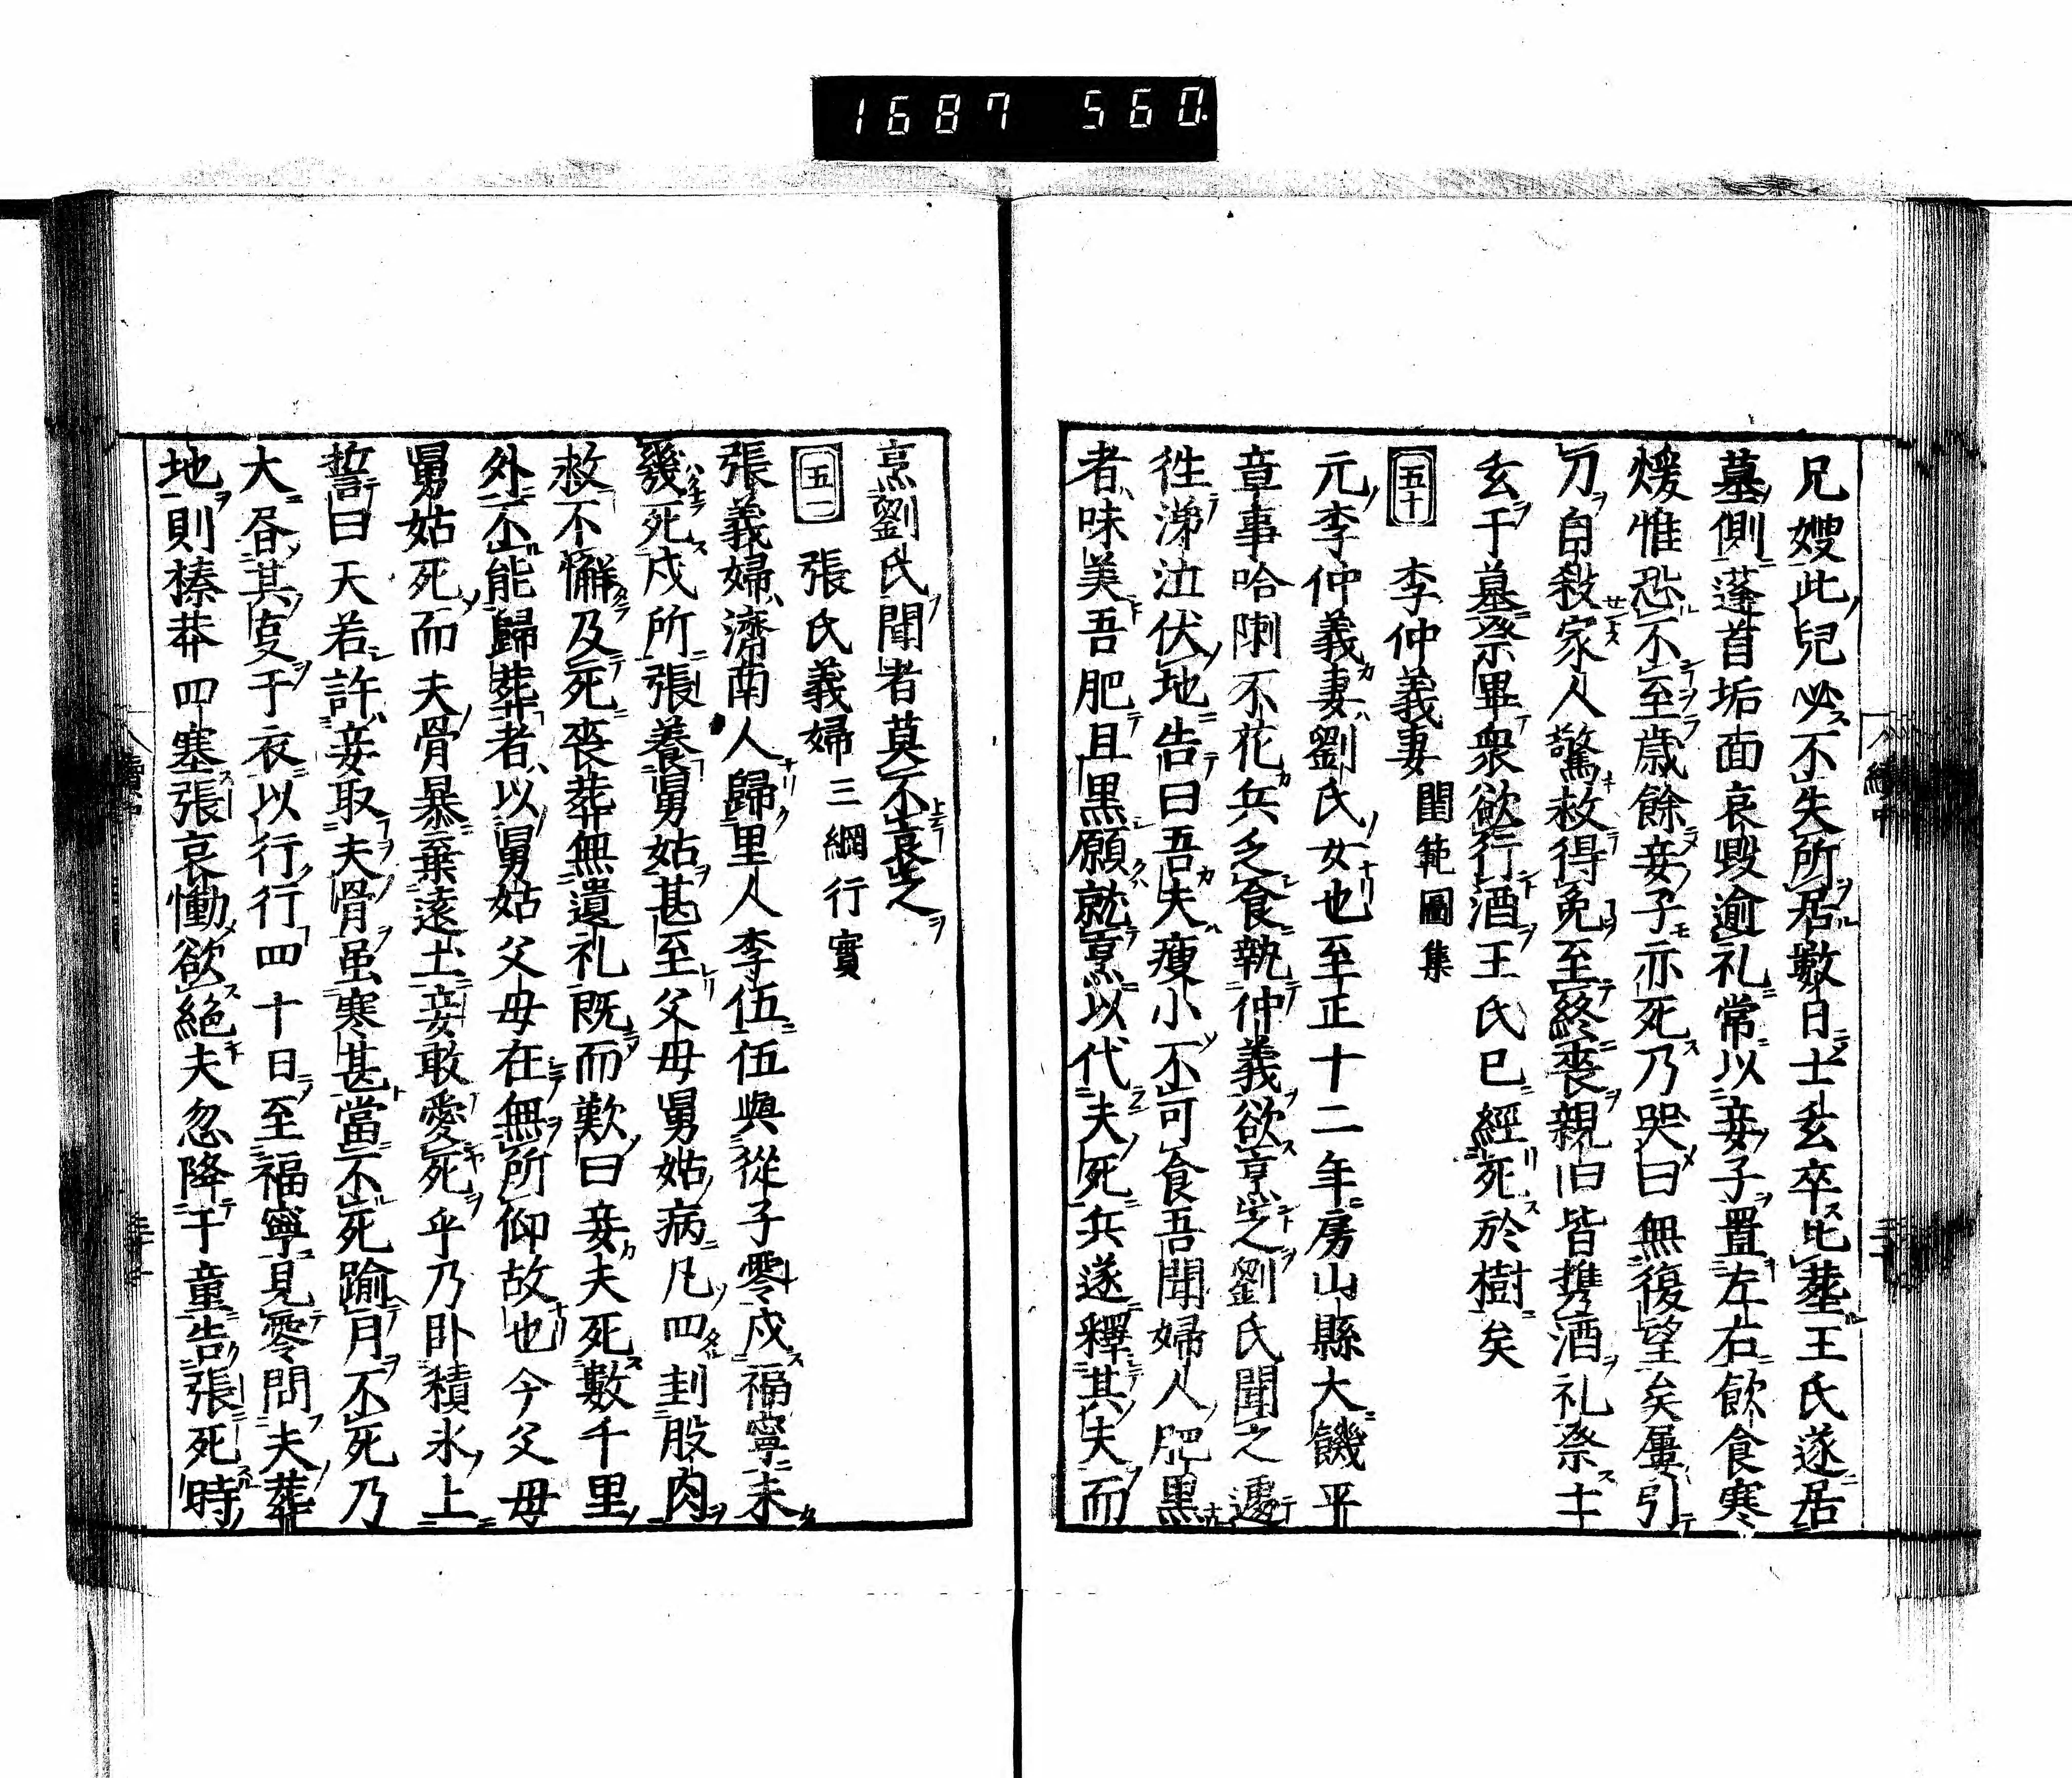 1687 560
兄嫂此兒必不失所居數日士玄卒比葬王氏遂居
墓側蓬首垢面哀毀逾礼常以妾子置左右飲食寒
煖惟恐不至歲餘妾子亦死乃哭曰無復望矣屢引
刀自殺家人驚救得免至終喪親旧皆携酒礼祭士
玄于墓祭畢衆欲行酒王氏已經死於樹矣
五十 李仲義妻 閨範圖集
元李仲義妻劉氏女也至正十二年房山縣大饑平
章事哈剌不花兵乏食執仲義欲烹之劉氏聞之遽
徃涕泣伏地告曰吾夫瘦小不可食吾聞婦人肥黒
者味美吾肥且黒願就烹以代夫死兵遂釋其夫而
烹劉氏聞者莫不哀之
五一 張氏義婦 三綱行實
張義婦濟南人歸里人李伍伍與從子零戍福寧未
幾死戍所張養舅姑甚至父母舅姑病凡四刲股肉
救不懈及死喪葬無遺礼既而歎曰妾夫死數千里
外不能歸葬者以舅姑父母在無所仰故也今父母
舅姑死而夫骨暴棄遠土妾敢愛死乎乃卧積氷上
誓曰天若許妾取夫骨虽寒甚當不死踰月不死乃
大昏其亊于衣以行行四十日至福寧見零問夫葬
地則榛莽四塞張哀慟欲絶夫忽降于童告張死時